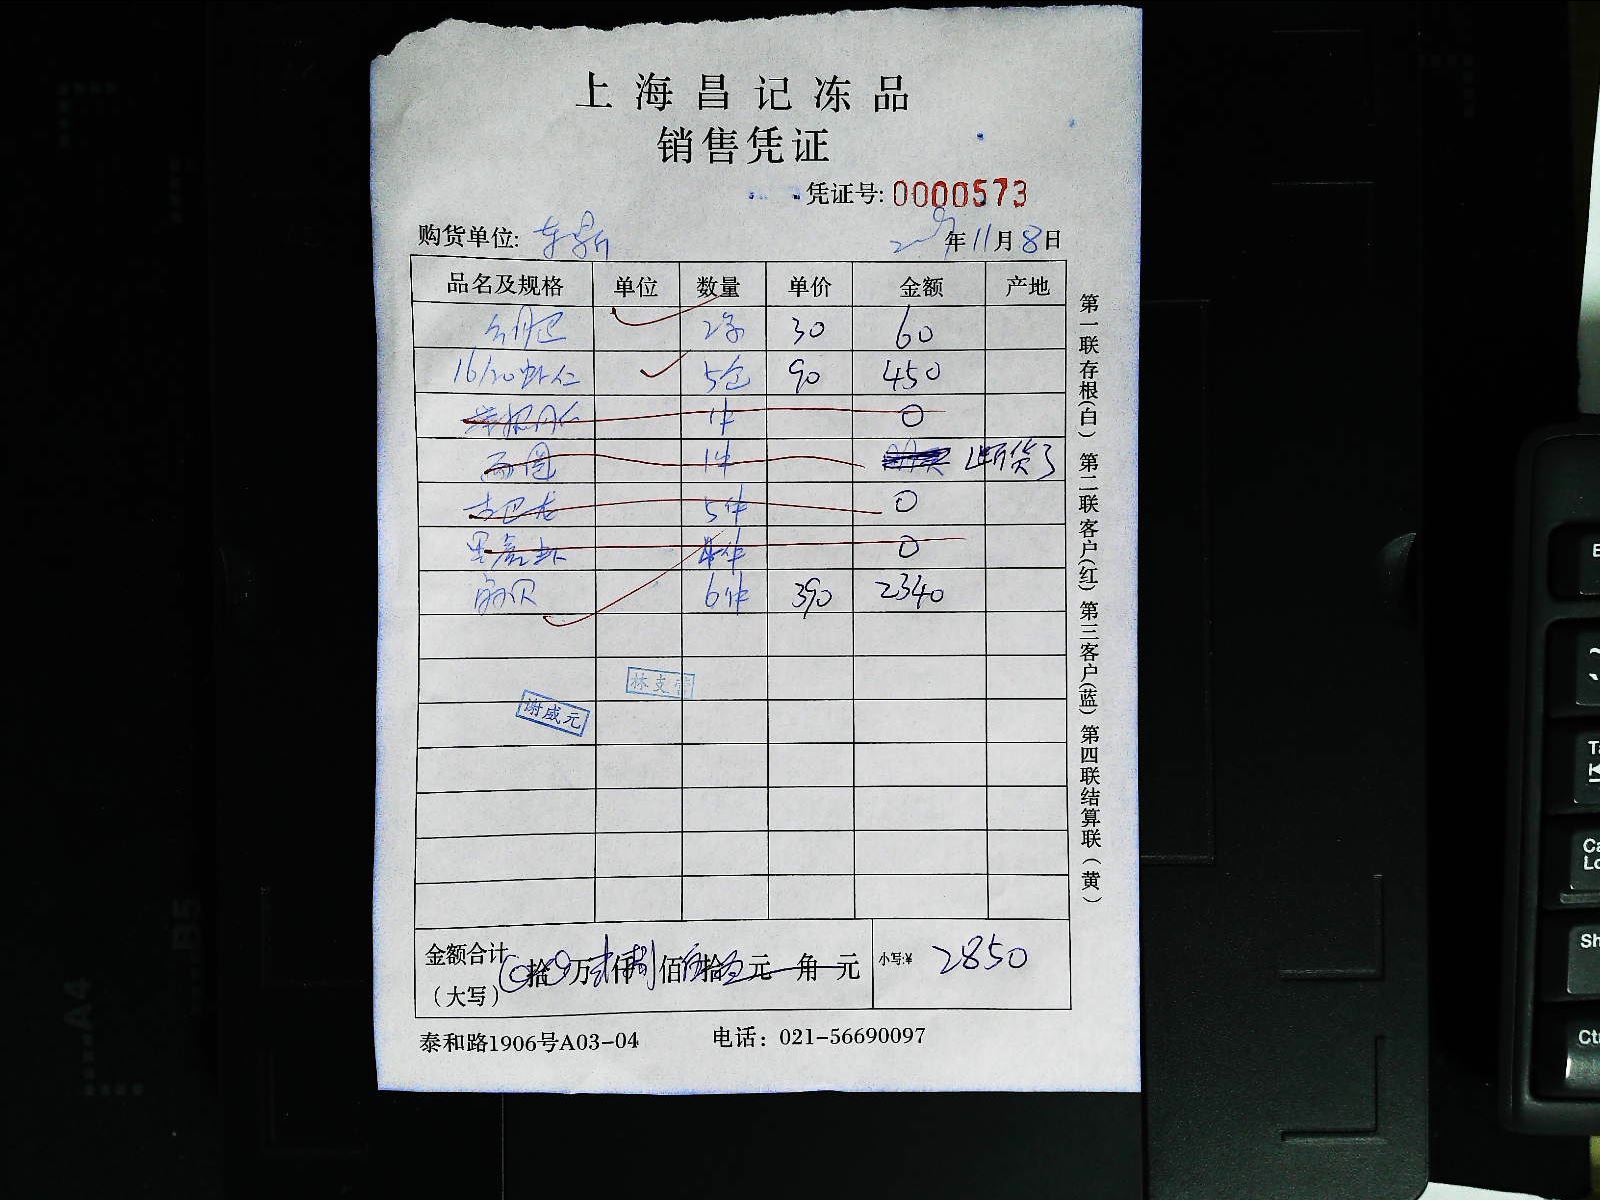 上海昌记冻品
销售凭证
凭证号: 0000573
购货单位:
年 11 月 8 日
品名及规格 单位 数量 单价 金额 产地
2 30 60
16/20虾仁 5包 90 450
1件 0
1件 断货了
5件 0
虾 件 0
6件 390 2340
林支
谢威元
金额合计 拾 万 仟 捌 佰 伍 拾 零 元 角 元 小写:¥ 2850
(大写)
泰和路1906号A03-04 电话: 021-56690097
第一联存根(白) 第二联客户(红) 第三客户(蓝) 第四联结算联(黄)
B5
A4